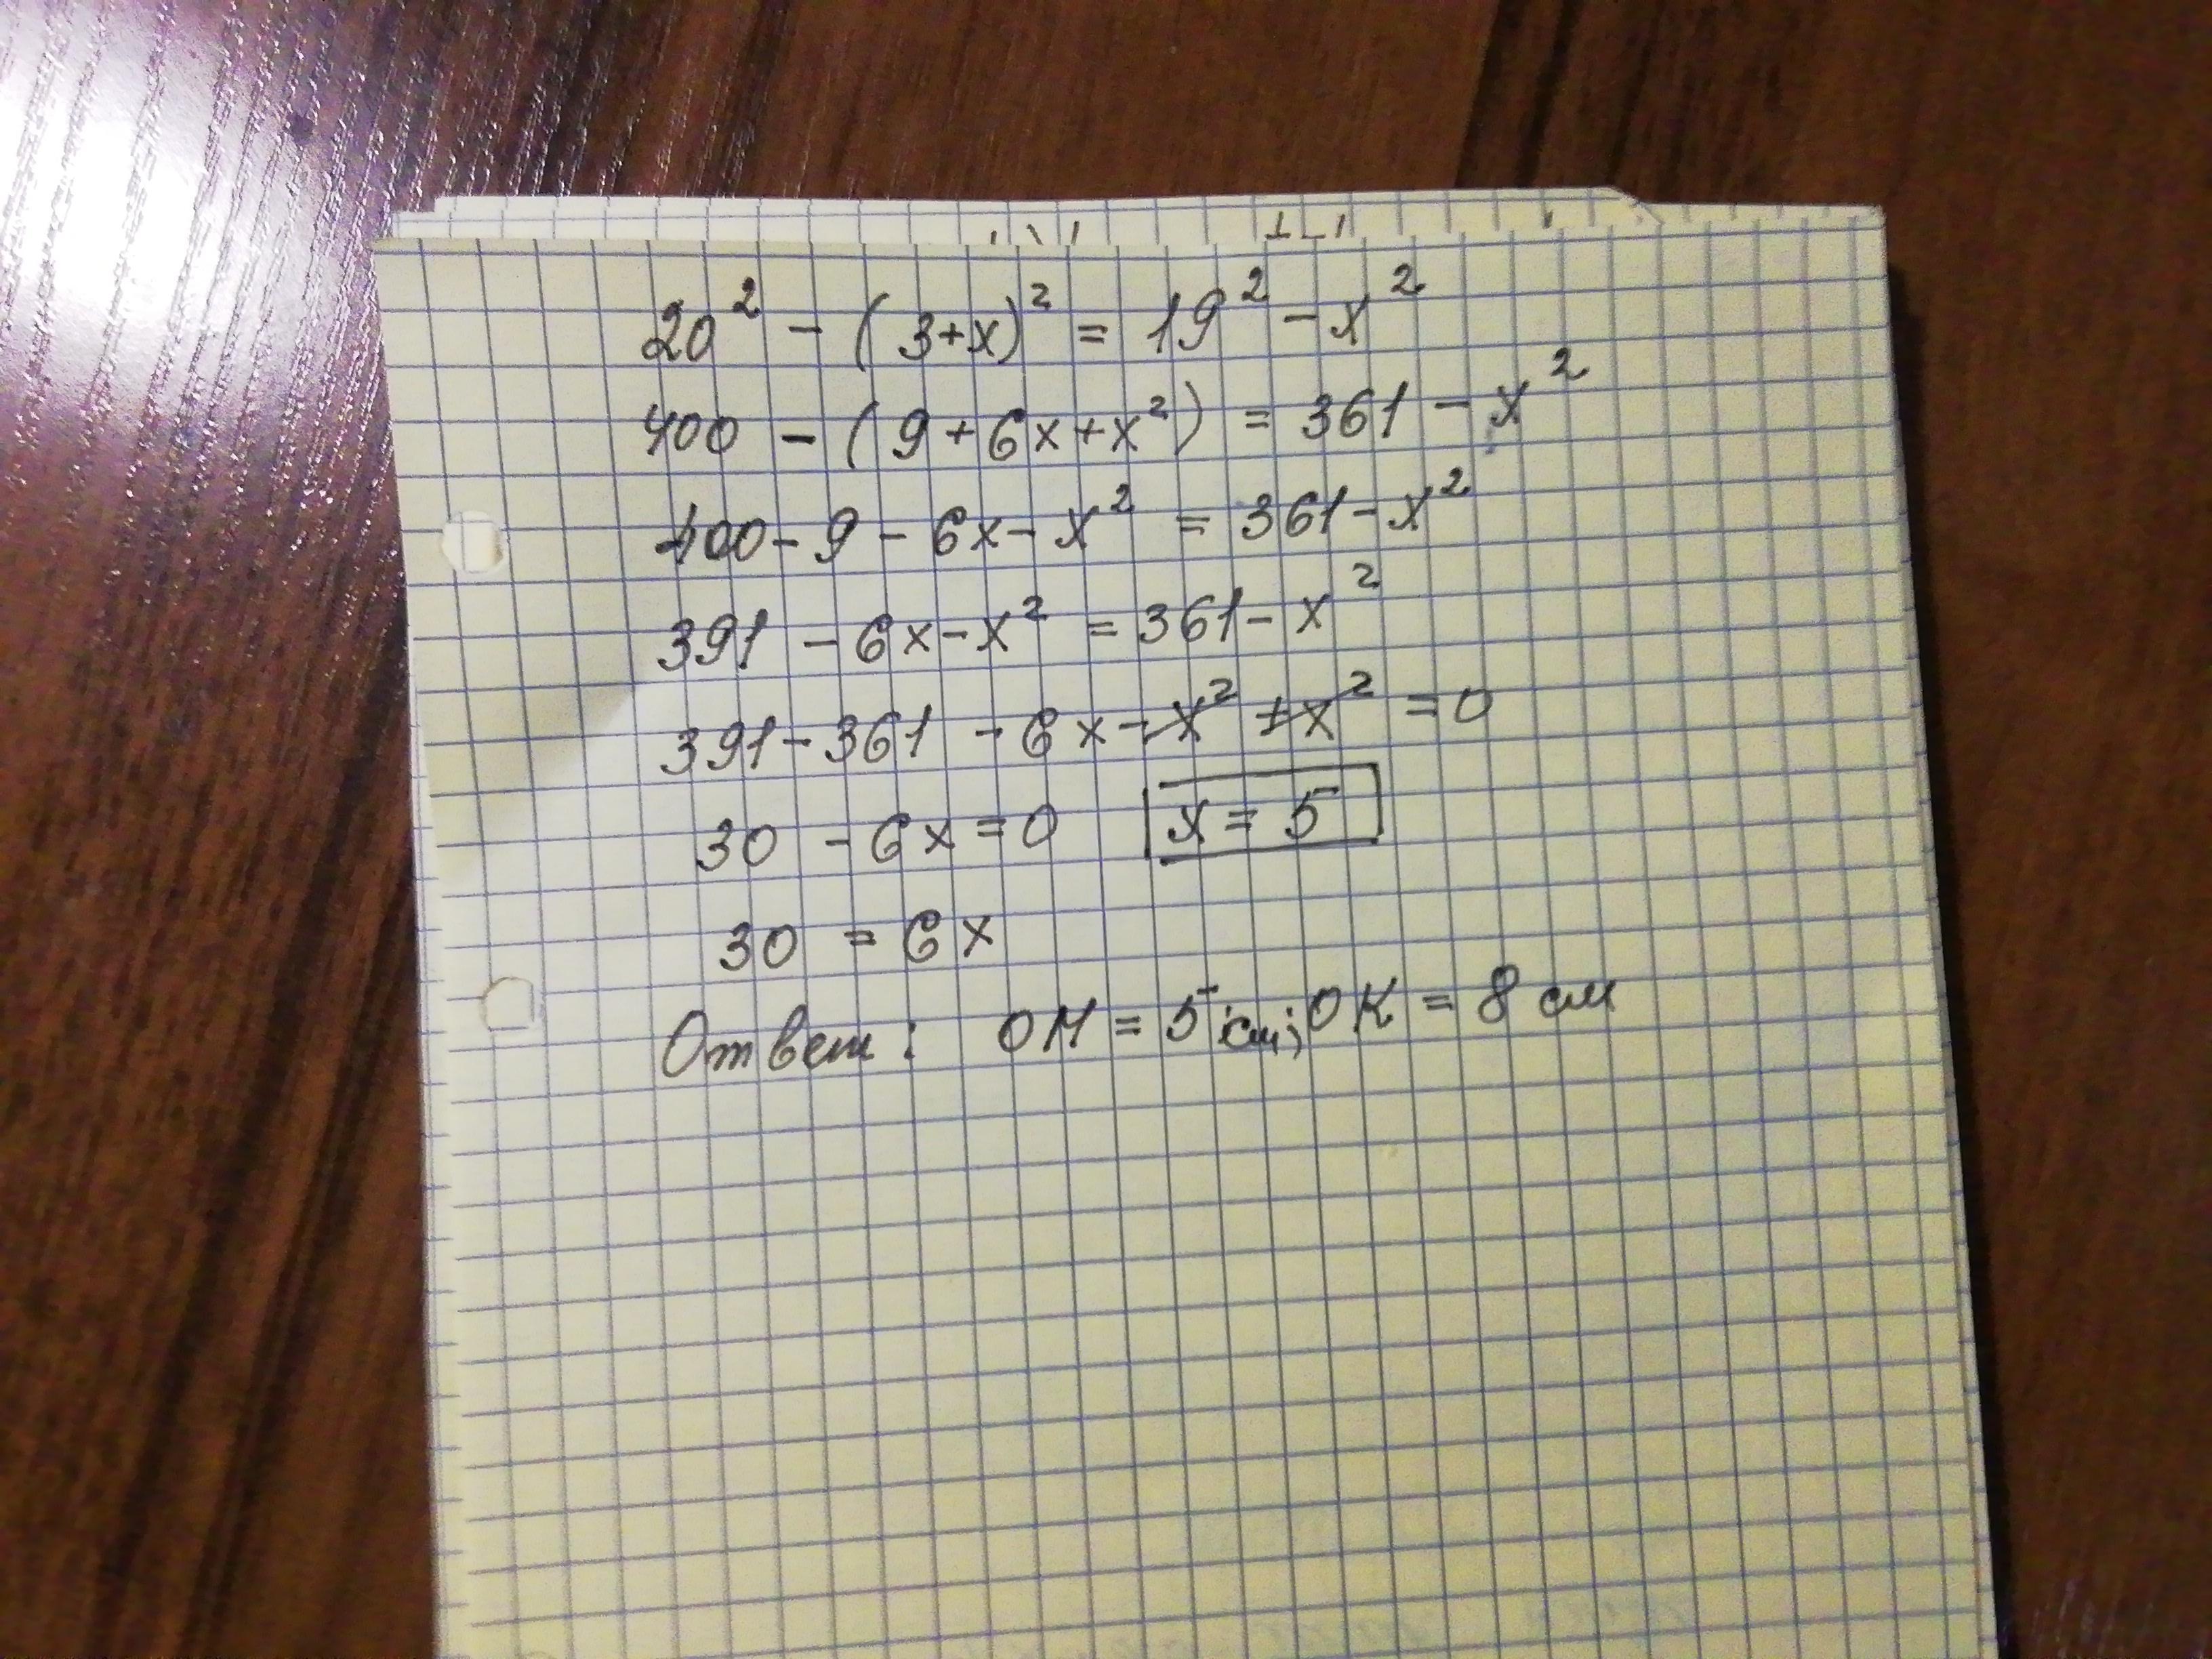 20² - (3+x)² = 19² - x²
400 - (9 + 6x + x²) = 361 - x²
400 - 9 - 6x - x² = 361 - x²
391 - 6x - x² = 361 - x²
391 - 361 - 6x - x² + x² = 0
30 - 6x = 0 x = 5
30 = 6x
Ответ: ОМ = 5 см; ОК = 8 см